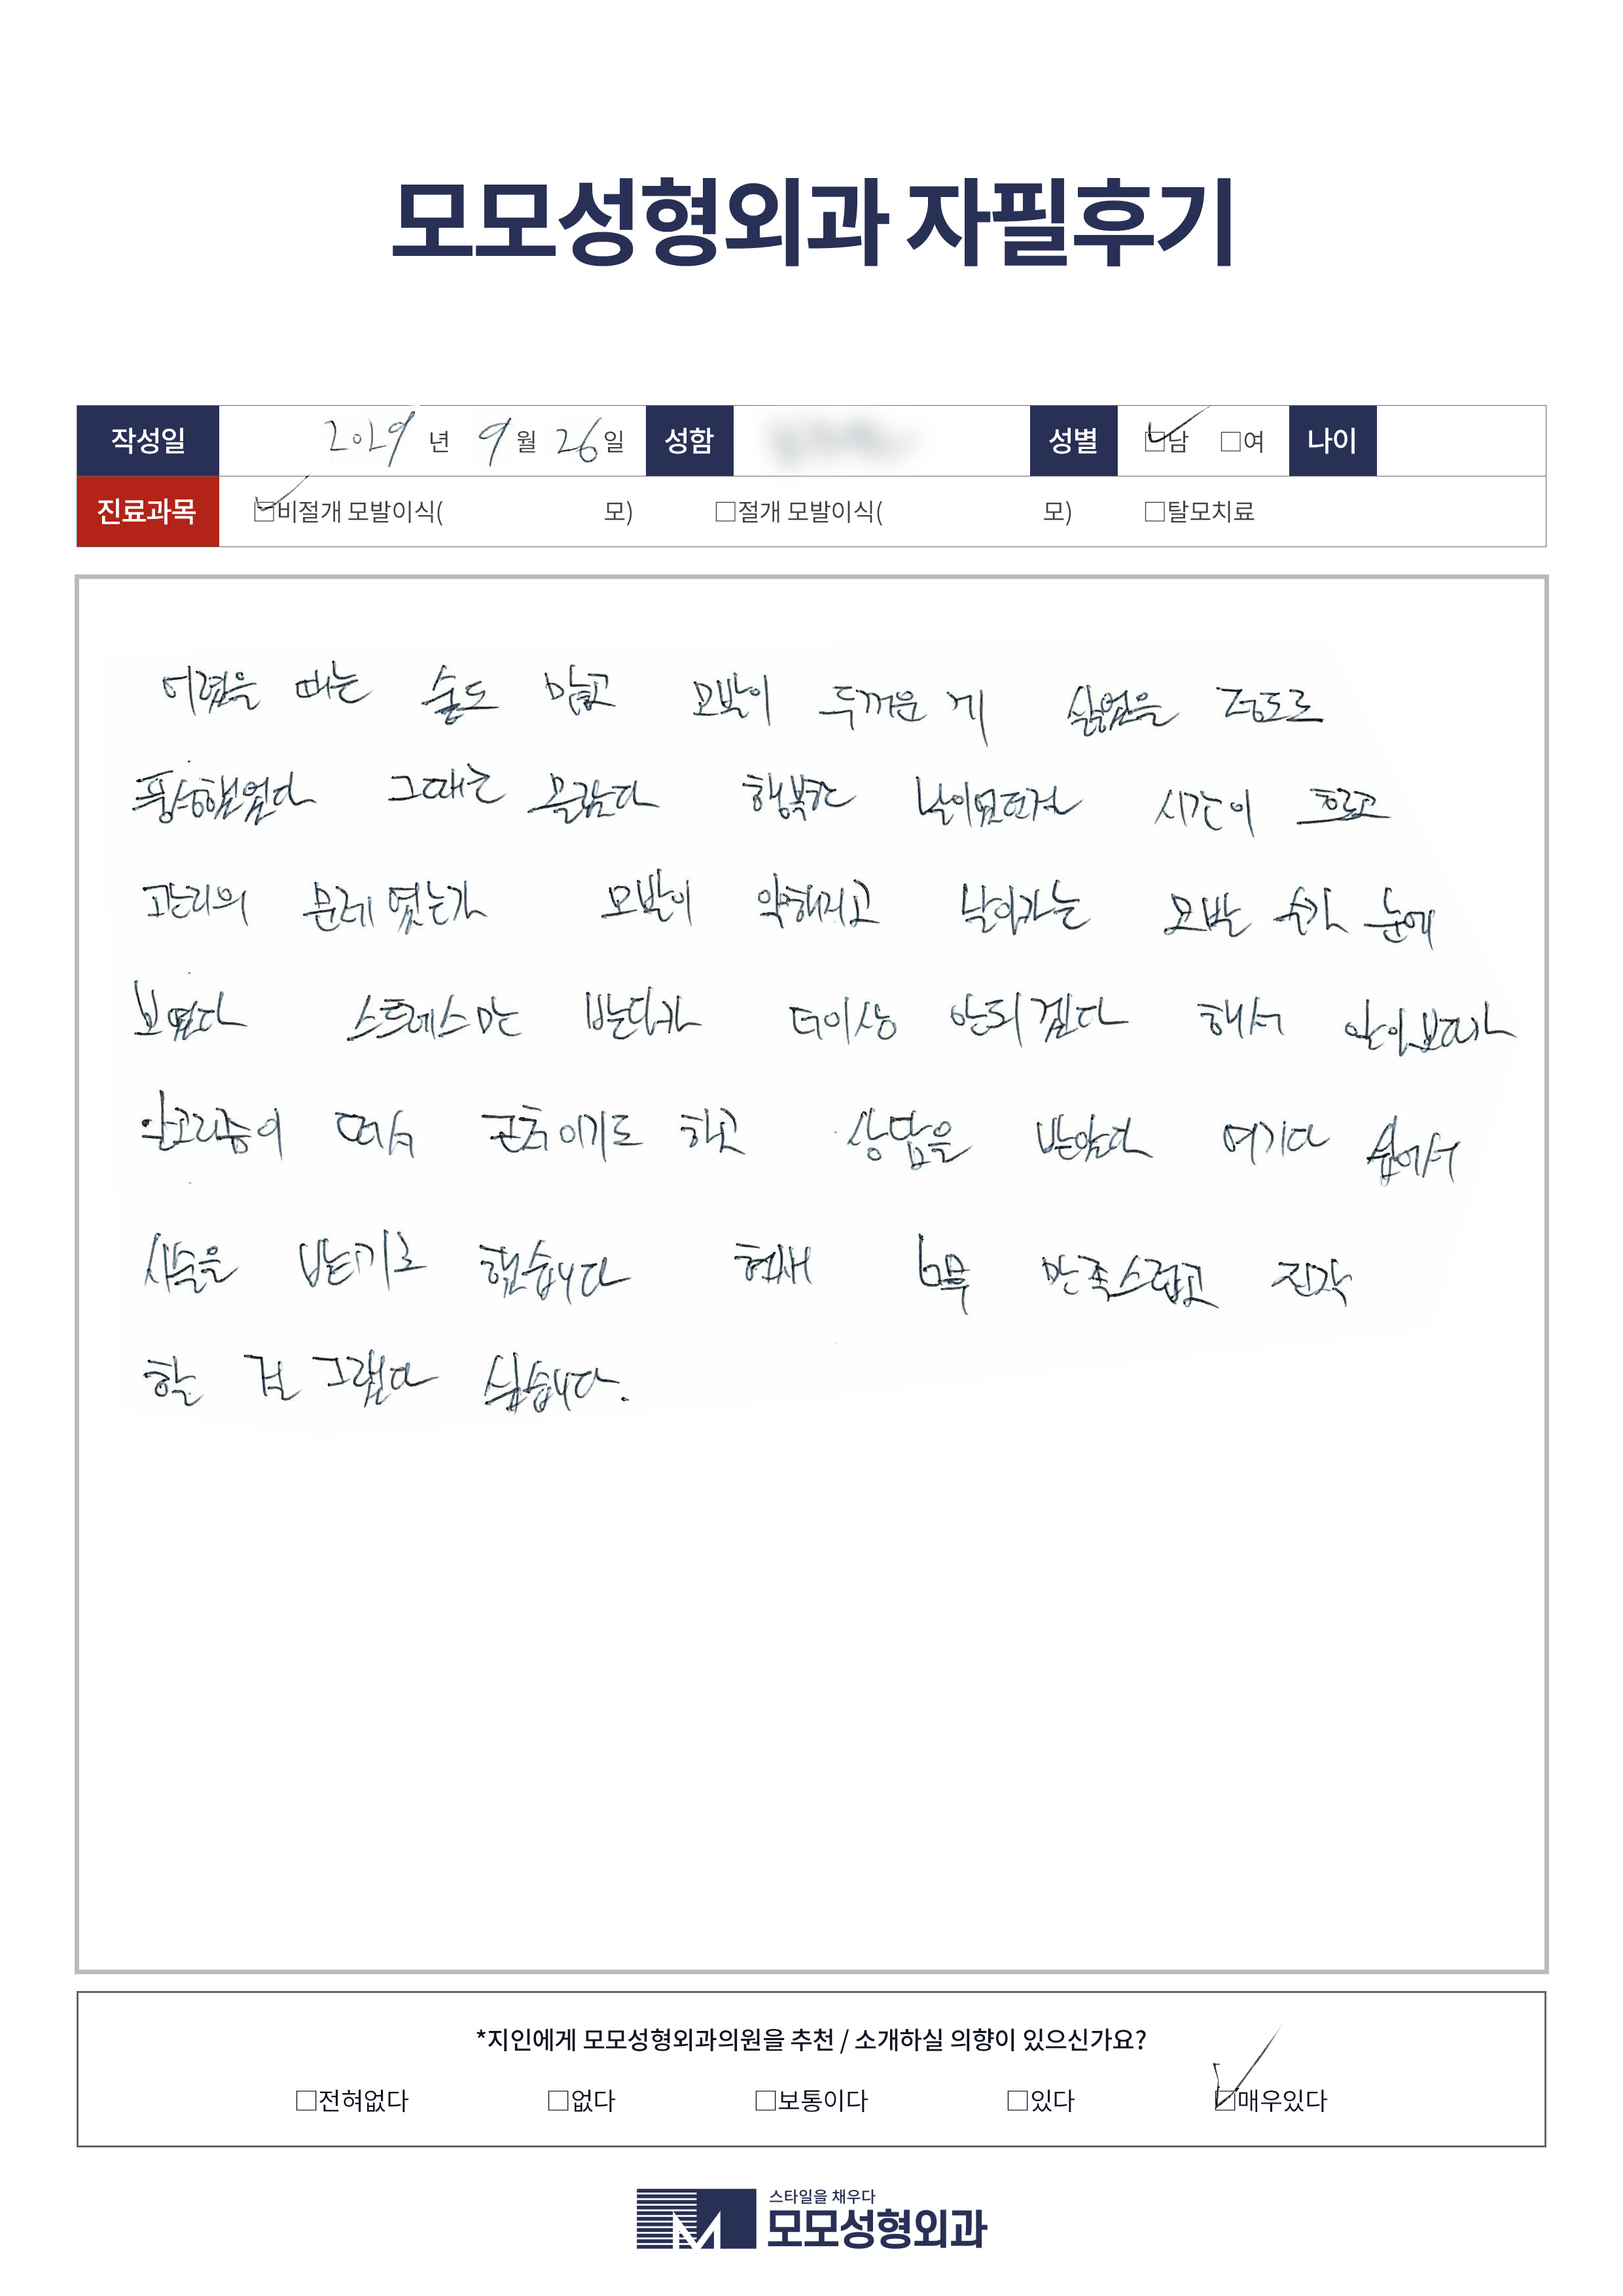 모모성형외과 자필후기
작성일 2029년 9월 26일 성함 성별 ☑남 □여 나이
진료과목 ☑비절개 모발이식( 모) □절개 모발이식( 모) □탈모치료
어렸을 때는 숱도 많고 모발이 두꺼운 게 싫었을 정도로
풍성했었다 그때는 몰랐다 행복한 날이었던걸 시간이 흐르고
관리의 문제였는가 모발이 약해지고 날아가는 모발 수가 눈에
보였다 스트레스만 받다가 더이상 안되겠다 해서 알아보다가
알고리즘이 떠서 근처이기도 하고 상담을 받았다 여기다 싶어서
시술을 받기로 했습니다 현재 너무 만족스럽고 진작
할 걸 그랬다 싶습니다.
*지인에게 모모성형외과의원을 추천 / 소개하실 의향이 있으신가요?
□전혀없다 □없다 □보통이다 □있다 ☑매우있다
스타일을 채우다
모모성형외과